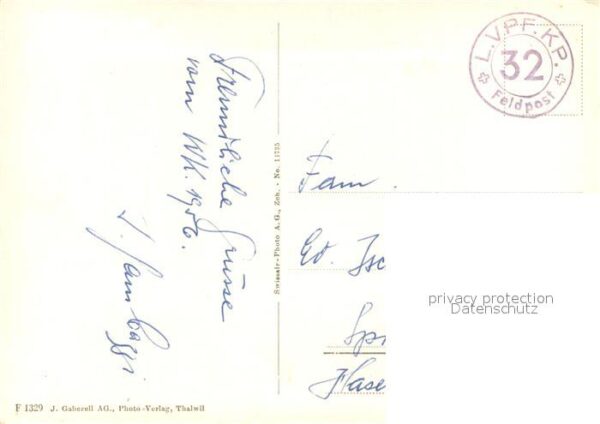 L.V.PF.KP.
32
Feldpost
Freundliche Grüsse
vom WK. 1956.
Swissair-Photo A.G., Zch. - No. 11735
Fam.
Ed.
Hase
privacy protection
Datenschutz
F 1329 J. Gaberell AG., Photo-Verlag, Thalwil